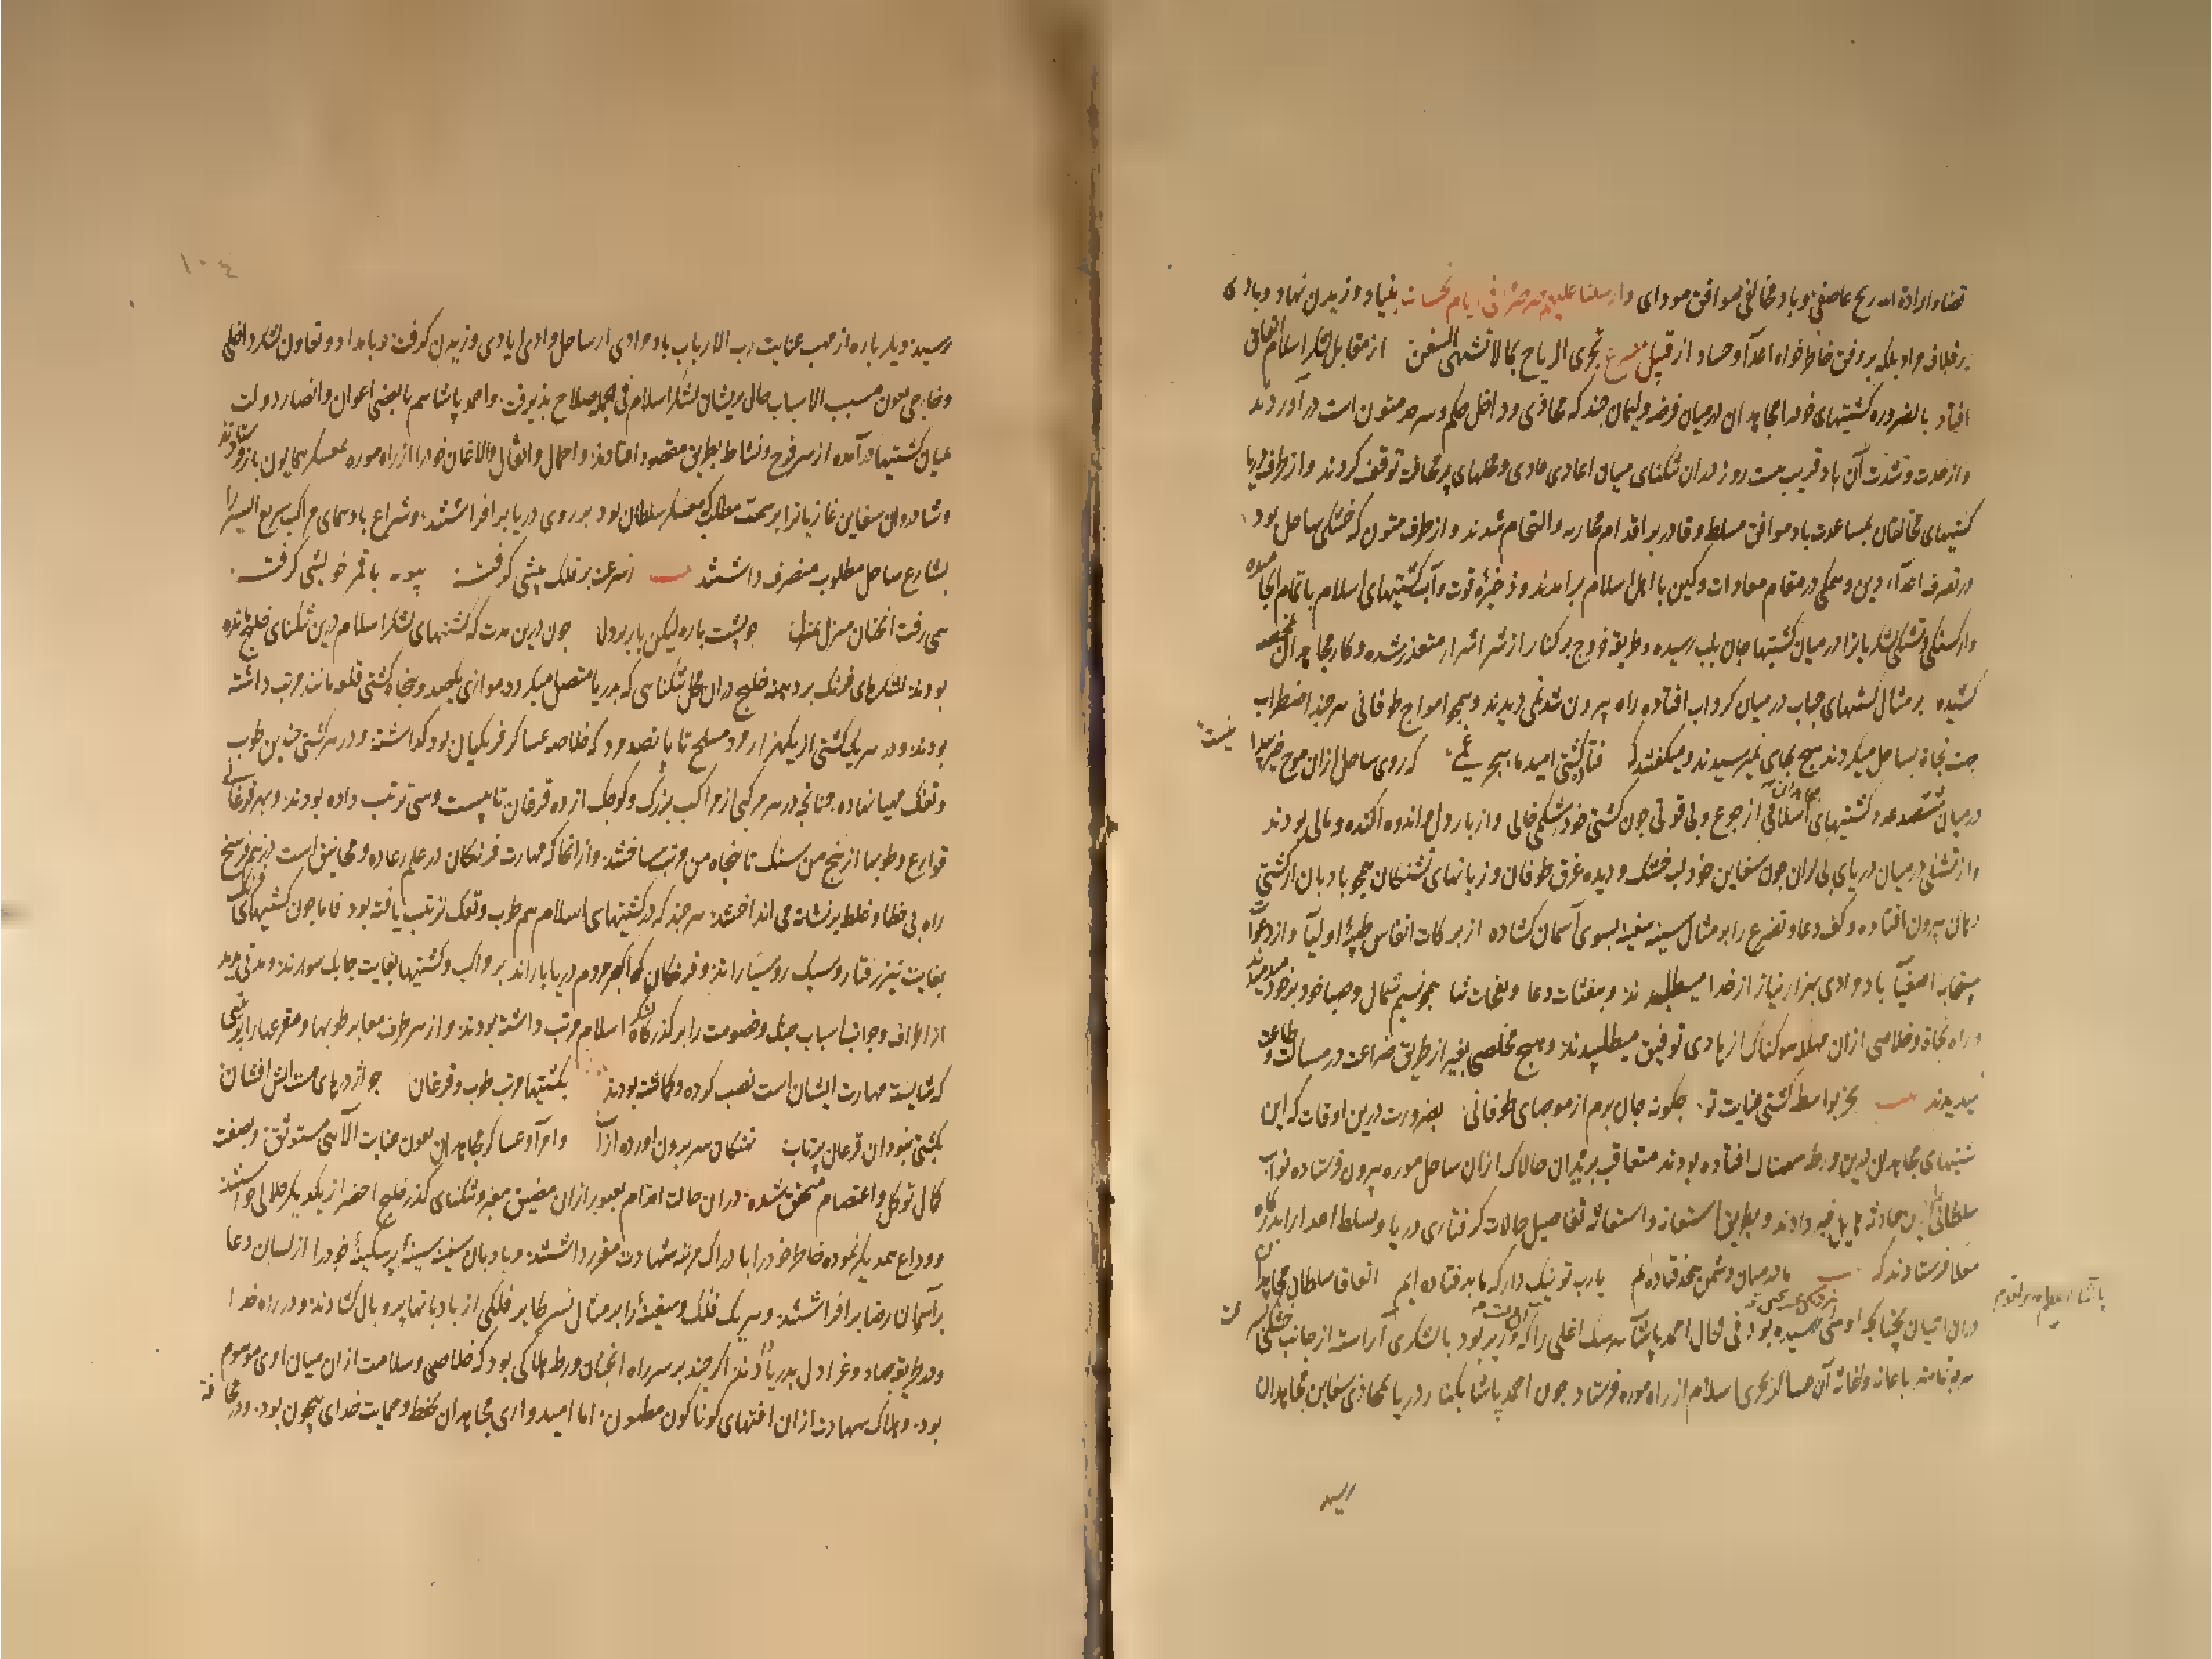 قضا و ارادة الله ریح عاصفی و باد مخالفی موافق مودای وارسلنا علیهم صرصرا فی ایام نحسات بنیاد وزیدن نهاد و بادی
برخلاف مراد بلکه بر وفق خاطرخواه اعدا و حساد از قبیل مصرع تجری الریاح بمالا تشتهی السفن از مقابل لشکر اسلام اتفاق
افتاد بالضروره کشتیهای خود را مجاهدان در میان فرضه و لیمان چند که محاذی و داخل حکم و سرحد متون است درآوردند
و از حدت و شدت آن باد قریب بیست روز در آن تنکنای میان اعادی و محلهای پر مخافت توقف کردند و از طرف دریا
کشتیهای مخالفان بمساعدت باد موافق مسلط و قادر بر اقدام محاربه و التحام شدند و از طرف متون که خشکی ساحل بود
در تصرف اعداء دین و همکی در مقام معادات و کین با اهل اسلام برآمدند و ذخیرهٔ قوت و آب کشتیهای اسلام باتمام انجامیده
و از کرسنکی و تشنکی لشکریانرا در میان کشتیها جان بلب رسیده و طریق خروج بر کنار از شر اشرار متعذر شده و کار مجاهدان
کشیده بر مثال کشتیهای حباب در میان کرداب افتاده راه بیرون شد نمی دیدند و همچو امواج طوفانی هر چند اضطراب
جهت نجاة بساحل میکردند هیچ بجای نمیرسیدند و میکفتند که فتاد کشتی امید ما ببحر غمی که روی ساحل از آن موج خیز پیدا نیست
در میان کشتیهای اسلامی از جوع و بی قوتی چون کشتی خود شکمی خالی و از بار دل و اندوه آکنده و مالی بودند
و از تشنکی در میان دریای بی کران چون سفاین خود لب خشک و دیده غرق طوفان و زبانهای تشنکان همچو بادبان از کشتی
دهان بیرون افتاده و کف دعا و تضرع را بر مثال سینه سفینه بسوی آسمان کشاده از برکات انفاس طیبهٔ اولیا و از دعوات
مستجابه اصفیا باد مرادی بهزار نیاز از خدا میطلبیدند و بنفثات دعا و نفحات ثنا همچو نسیم شمال و صبا خود بر خود میدمیدند
و راه نجاة و خلاصی از آن مهلکه هولناک از هادی توفیق میطلبیدند و هیچ مخلصی بغیر از طریق ضراعت در مسالک طاعت
ندیدند بیت بجز بواسطه کشتی عنایت تو چکونه جان برم از موجهای طوفانی بضرورت درین اوقات که این
کشتیهای مجاهدان درین ورطه افتاده بودند متعاقب بریدان چالاک از آن ساحل موره بیرون فرستاده نواب
سلطانی ازین حادثه هایل خبر دادند و بطریق استعانه و استغاثه تفاصیل حالات کرفتاری دریا و تسلط اعدا را بدرکاه
معلا فرستادند که بیت ما در میان دشمن بیحد فتاده ایم یارب تو نیک دار که ما بد فتاده ایم اتفاقا سلطان مجاهدان
در آن احیان بود فی الحال احمد پاشا هرسک اغلی را که وزیر بود با لشکری آراسته از جانب خشکی
باعانه و اغاثه آن عساکر بحری اسلام از راه موره فرستاد چون احمد پاشا بکنار دریا بمحاذی سفاین مجاهدان
رسید
١٠٤
رسید و دیکر باره از مهب عنایت رب الارباب باد مرادی از ساحل وادی ایادی وزیدن کرفت و بامداد و تعاون لشکر داخلی
و خارجی بعون مسبب الاسباب حال پریشان لشکر اسلام فی الجمله صلاح پذیرفت و احمد پاشا هم با بعضی اعوان و انصار دولت
میان کشتیها درآمده از سر فرح و نشاط بطریق مقصود افتادند و احمال و اثقال و الاغان خود را از راه موره بمعسکر همایون باز فرستادند
و شادروان سفاین غازیانرا بر سمت مطلب که معسکر سلطان بود بر روی دریا برافراشتند و شراع بادنمای مراکب سریع السیر را
بشارع ساحل مطلوب منصرف داشتند بیت ز سرعت بر فلک پیشی کرفته پیوسته با قمر خویشی کرفته
همی رفت آنچنان منزل بمنزل چون درین مدت که کشتیهای لشکر اسلام درین تنکنای خلیج مانده
بودند لشکرهای فرنک بر دهنه خلیج در آن محل تنکنایی که بدریا متصل میکردد موازی یکصد و پنجاه کشتی قلعه مانند مرتب داشته
بودند و در هر یک کشتی از یکهزار مرد مسلح تا پانصد مرد که خلاصه عساکر فرنکیان بود کذاشته و در هر کشتی چندین طوب
و تفنک مهیا نهاده چنانچه در هر مرکبی از مراکب بزرک و کوچک از ده قزغان تا بیست و سی ترتیب داده بودند و بهر قزغانی
قوارع و طوبها از پنج من سنک تا پنجاه من مرتب ساخته و از آنجا که مهارت فرنکان در علم رعاده و مجانیق است در نیم فرسخ
راه بی خطا و غلط بر نشانه می انداختند هر چند که در کشتیهای اسلام هم طوب و تفنک ترتیب یافته بود فاما چون کشتیهای فرنک
بغایت تیزرفتار و سبک رو سیاراند و فرنکان که اکثر مردم دریا باراند بر مراکب و کشتیها بغایت چابک سوارند و مدتی مدید
از اطراف و جوانب اسباب جنک و خصومت را بر کذرکاه لشکر اسلام مرتب داشته بودند و از هر طرف معابر طوبها و مفرعها را بروشی
که شایسته مهارت ایشان است نصب کرده و کماشته بودند بکشتیها مرتب طوب و قزغان چو اژدرهای مست آتش افشان
بکشتی نبود آن قزغان پرتاب نهنکان سر برون آورده از آب و امرا و عساکر مجاهدان بعون عنایت الاهی مستوثق و بصفت
کمال توکل و اعتصام متحقق شده در آن حالت اقدام بعبور از آن مضیق و تنکنای کذر خلیج اخضر از یکدیکر حلالی خواستند
و وداع همدیکر نموده خاطر خود را بادراک مرتبه شهادت مقرر داشتند و بادبان سفینه سینهٔ پرسکینهٔ خود را از لسان دعا
بر آسمان رضا برافراشتند و هر یک فلک و سفینه را بر مثال نسر طایر فلکی از بادبانها پر و بال کشادند و در راه خدا
و در طریق جهاد و غزا دل بدریا دادند اکر چند بر سر راه آنچنان ورطه هلاکی بود که خلاصی و سلامت از آن میان امری موهوم
بود و هلاک شهادت از آن آفتهای کوناکون مظنون اما امیدواری مجاهدان بحفظ و حمایت خدای بیچون بود